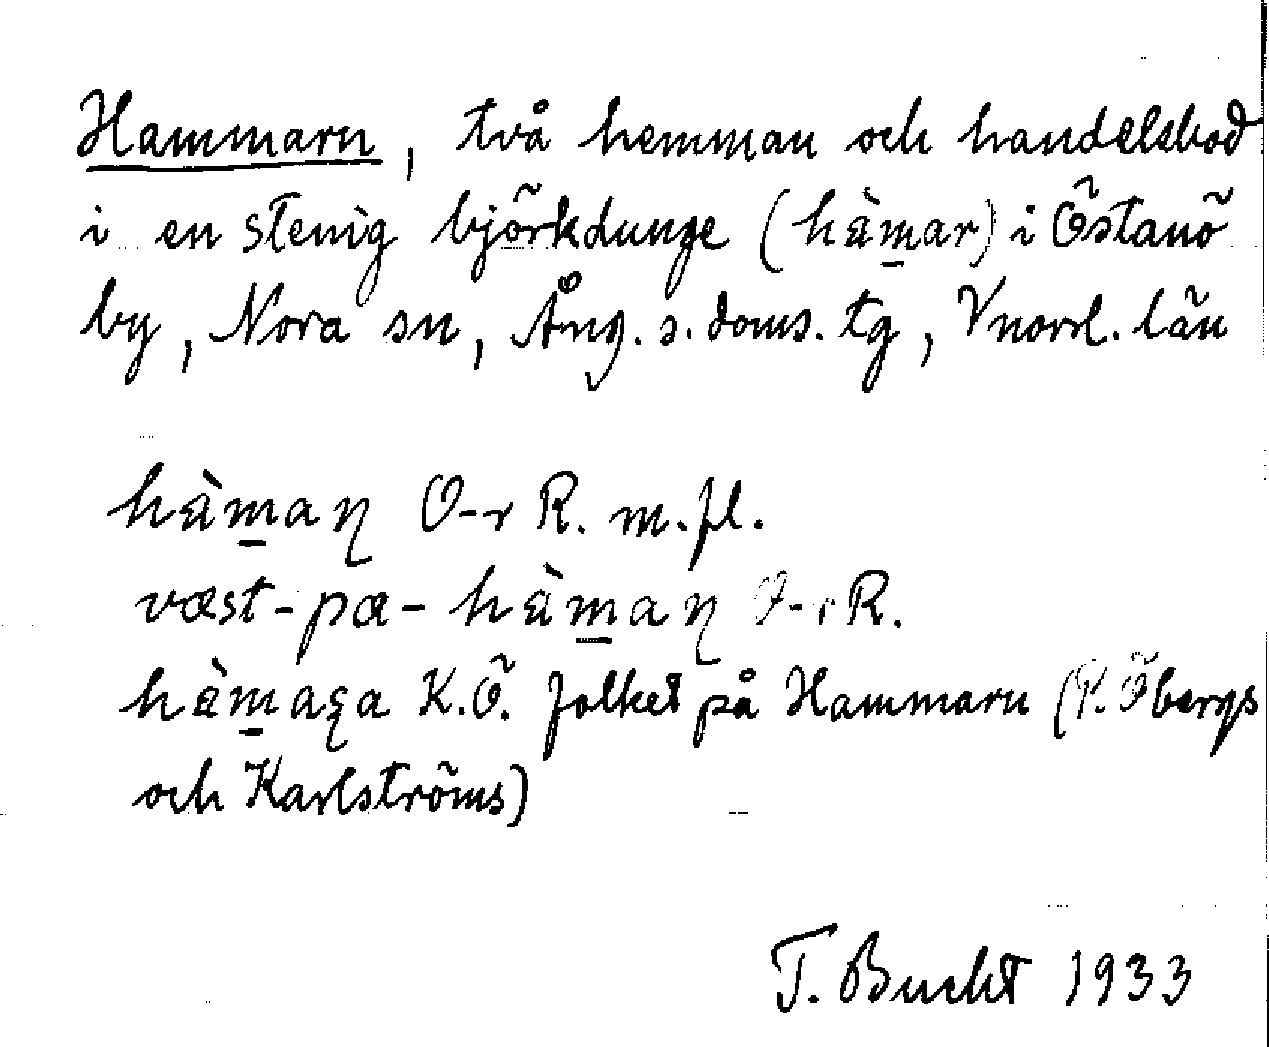 Hammarn, två hemman och handelsbod
i en stenig björkdunge (hàm̲ar) i Östanö
by, Nora sn, Ång. s. doms. tg, Vnorrl. län
hàm̲aη O-r R. m. fl.
væst-pæ-hàm̲aη O-r R.
hàm̲aʂa K.Ö. folket på Hammarn (R. Öbergs
och Karlströms)
T. Bucht 1933